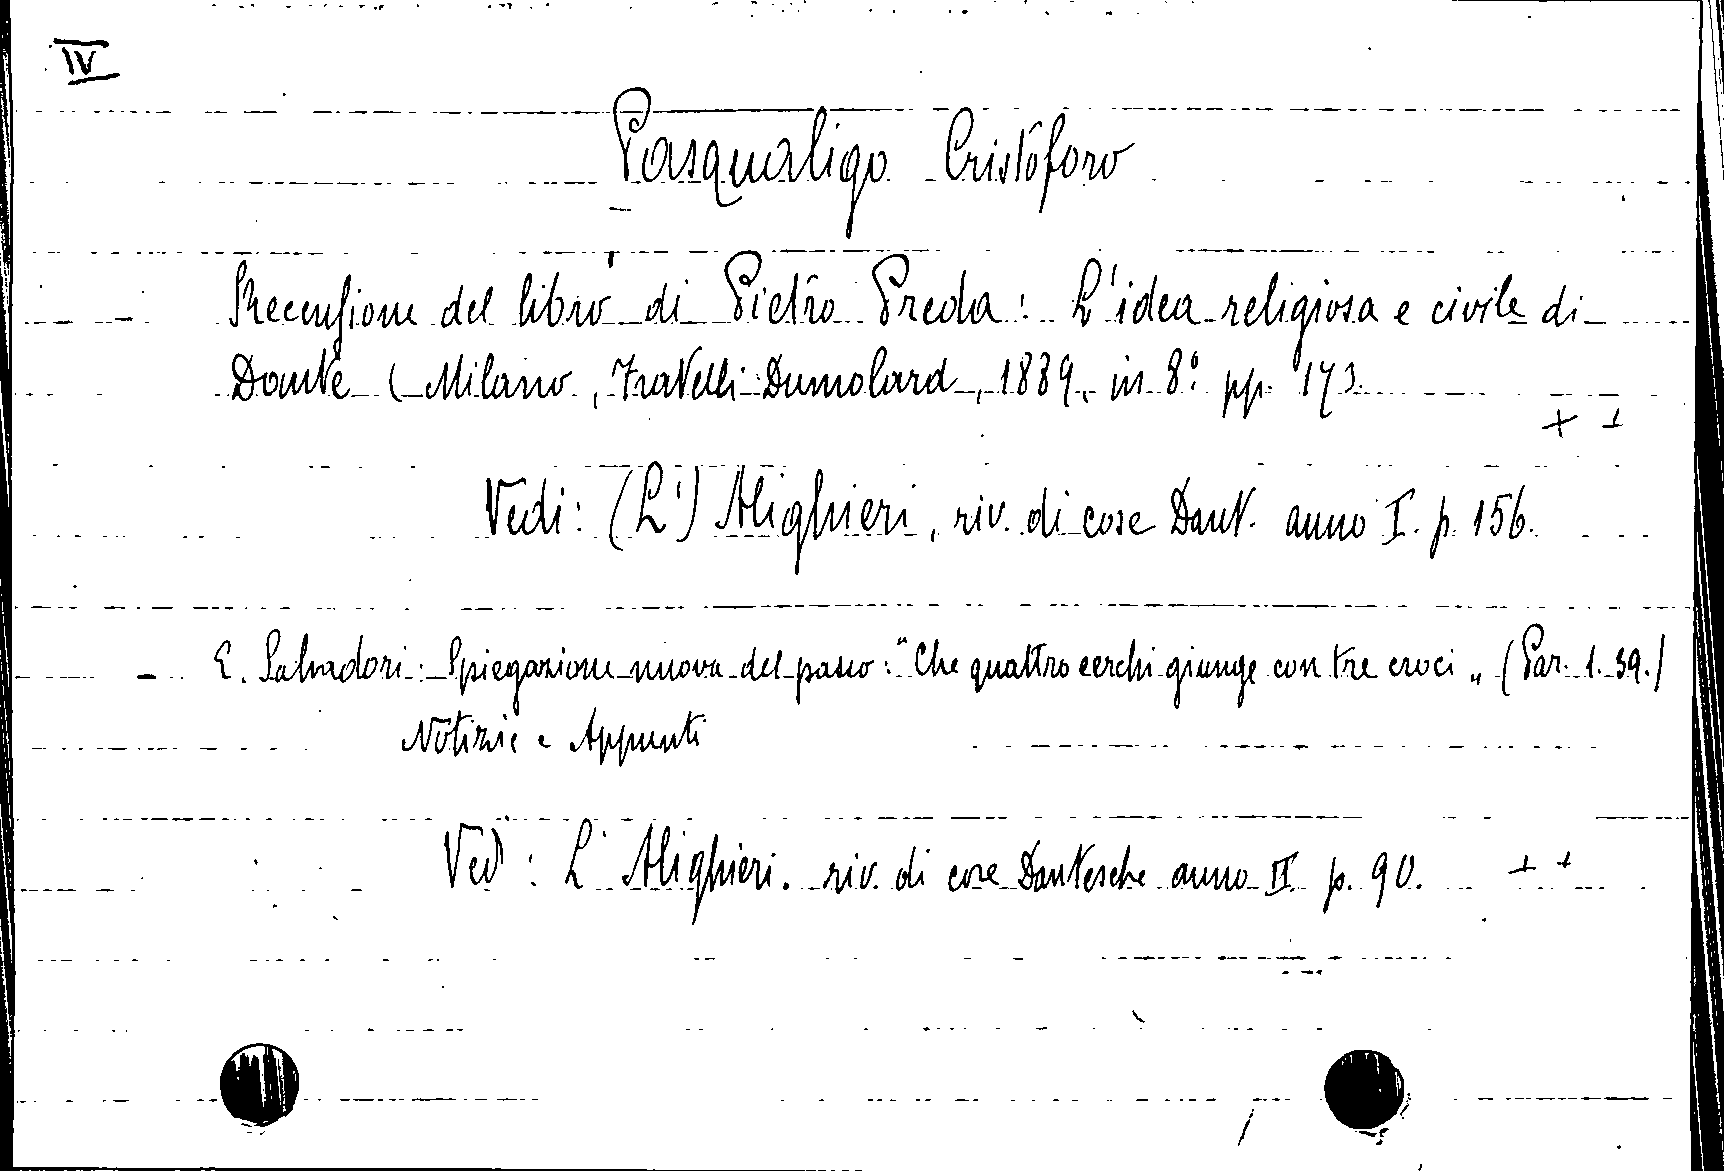 IV
Pasqualigo Cristoforo
Recensione del libro di Pietro Preda: L'idea religiosa e civile di
Dante (Milano, Fratelli Dumolard, 1889, in 8° pp. 173.
+ +
Vedi: (L') Alighieri, riv. di cose Dant. anno I. p. 156.
- E. Salvadori: Spiegazione nuova del passo: "Che quattro cerchi giunge con tre croci „ (Par. 1. 39.)
Notizie e Appunti
Vedi: L'Alighieri. riv. di cose Dantesche anno II p. 90. + +